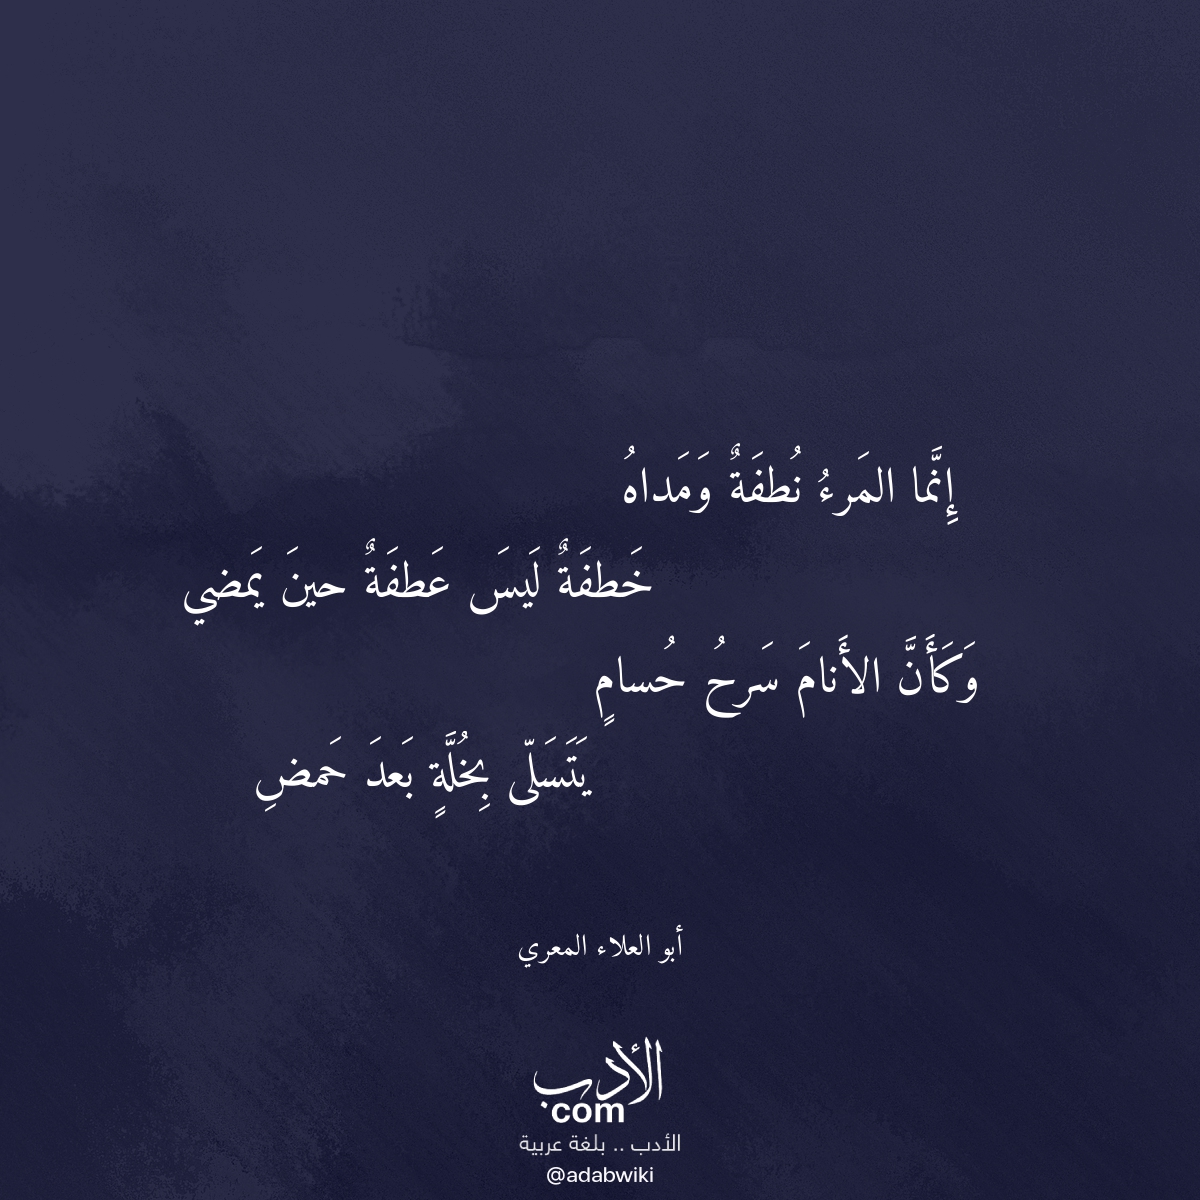 إِنَّما المَرءُ نُطفَةٌ وَمَداهُ
خَطفَةٌ لَيسَ عَطفَةٌ حينَ يَمضي
وَكَأَنَّ الأَنامَ سَرحُ حُسامٍ
يَتَسَلّى بِخُلَّةٍ بَعدَ حَمضِ
أبو العلاء المعري
الأدب
com
الأدب .. بلغة عربية
@adabwiki